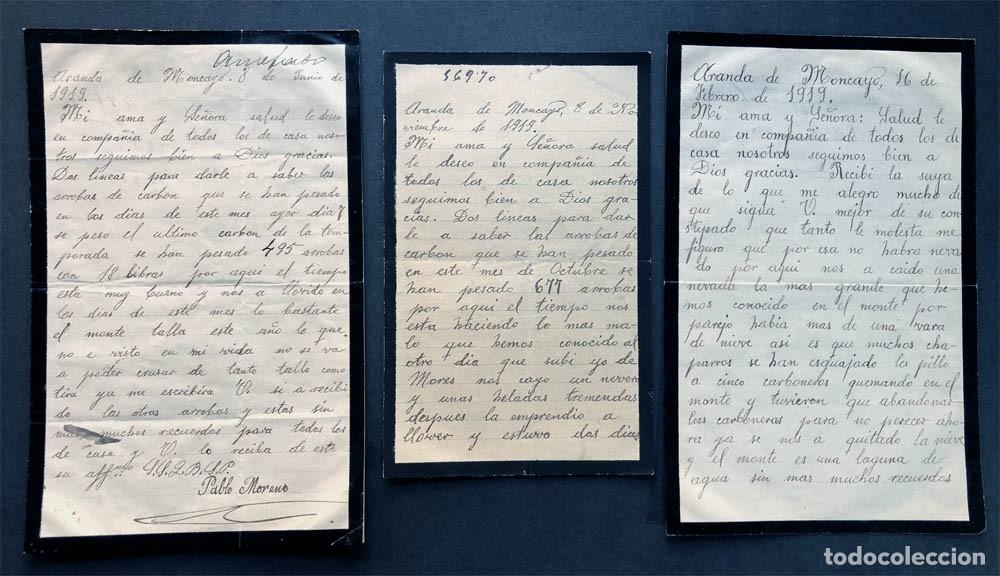 Aranda de Moncayo. 8 de Junio de
1919.
Mi ama y Señora salud le deseo
en compañia de todos los de casa noso-
tros seguimos bien a Dios gracias.
Dos lineas para darle a saber las
arrobas de carbon que se han pesado
en los dias de este mes ayer dia 7
se peso el ultimo carbon de la tem-
porada se han pesado 495 arrobas
con 18 libras por aqui el tiempo
esta muy bueno y nos a llovido en
los dias de este mes lo bastante
el monte talla este año lo que
no e visto en mi vida no se va
a poder crusar de tanto tallo como
tira ya me escribira V. si a recibi
do las otras arrobas y estas sin
mas muchos recuerdos para todos los
de casa y V. lo reciba de este
su aff.mo S.S.Q.B.S.P.
Pablo Moreno
569'70
Aranda de Moncayo, 8 de No-
viembre de 1919.
Mi ama y Señora salud
le deseo en compañia de
todos los de casa nosotros
seguimos bien a Dios gra-
cias. Dos lineas para dar
le a saber las arrobas de
carbon que se han pesado
en este mes de Octubre se
han pesado 677 arrobas
por aqui el tiempo nos
esta haciendo lo mas ma-
lo que hemos conocido al
otro dia que subi yo de
Mores nos cayo un nevero
y unas heladas tremendas
despues la emprendio a
llover y estuvo dos dias
Aranda de Moncayo, 16 de
Febrero de 1919.
Mi ama y Señora: Salud le
deseo en compañia de todos los de
casa nosotros seguimos bien a
Dios gracias. Recibi la suya
de lo que me alegro mucho de
que sigua V. mejor de su cons-
tipado que tanto le molesta me
figuro que por esa no habra neva
do por aqui nos a caido una
nevada la mas grande que he-
mos conocido en el monte por
parejo habia mas de una vara
de nieve asi es que muchos cha-
parros se han esquajado les pillo
a cinco carboneros quemando en el
monte y tuvieron que abandonar
las carboneras para no perecer aho-
ra ya se nos a quitado la nieve
y el monte es una laguna de
agua sin mas muchos recuerdos
todocoleccion